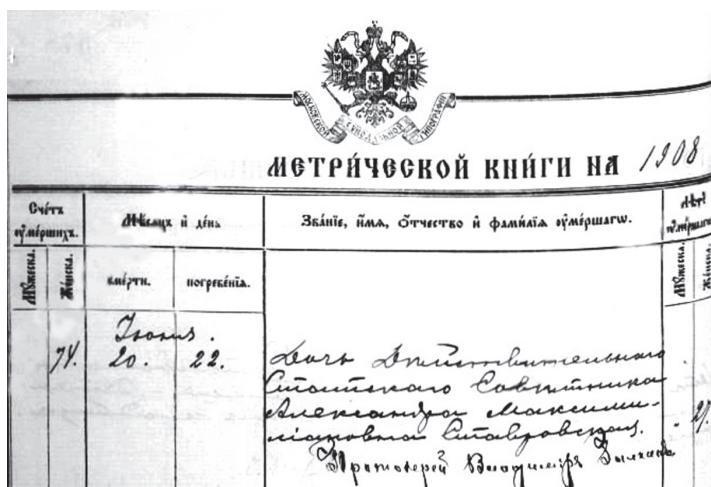 МОСКОВСКОЙ СѴНОДАЛЬНОЙ ТИПОГРАФІИ
МЕТРИ́ЧЕСКОЙ КНИ́ГИ НА 1908
Сче́тъ ᲂу҆ме́ршихъ.
Мѣ́сяцъ и҆ де́нь
Зва́нїе, и҆́мѧ, ѻ҆́тчество и҆ фамилїѧ ᲂу҆ме́ршагѡ.
Лѣ́тъ ᲂу҆ме́ршагѡ
Мꙋ́жеска.
Же́нска.
сме́рти.
погребе́нїѧ.
Мꙋ́жеска.
Же́нска.
Іюня.
74. 20. 22. Дочь Действительнаго
Статскаго Советника
Александра Максими-
лiановна Ставровская. " 27.
Протоіерей Владимиръ